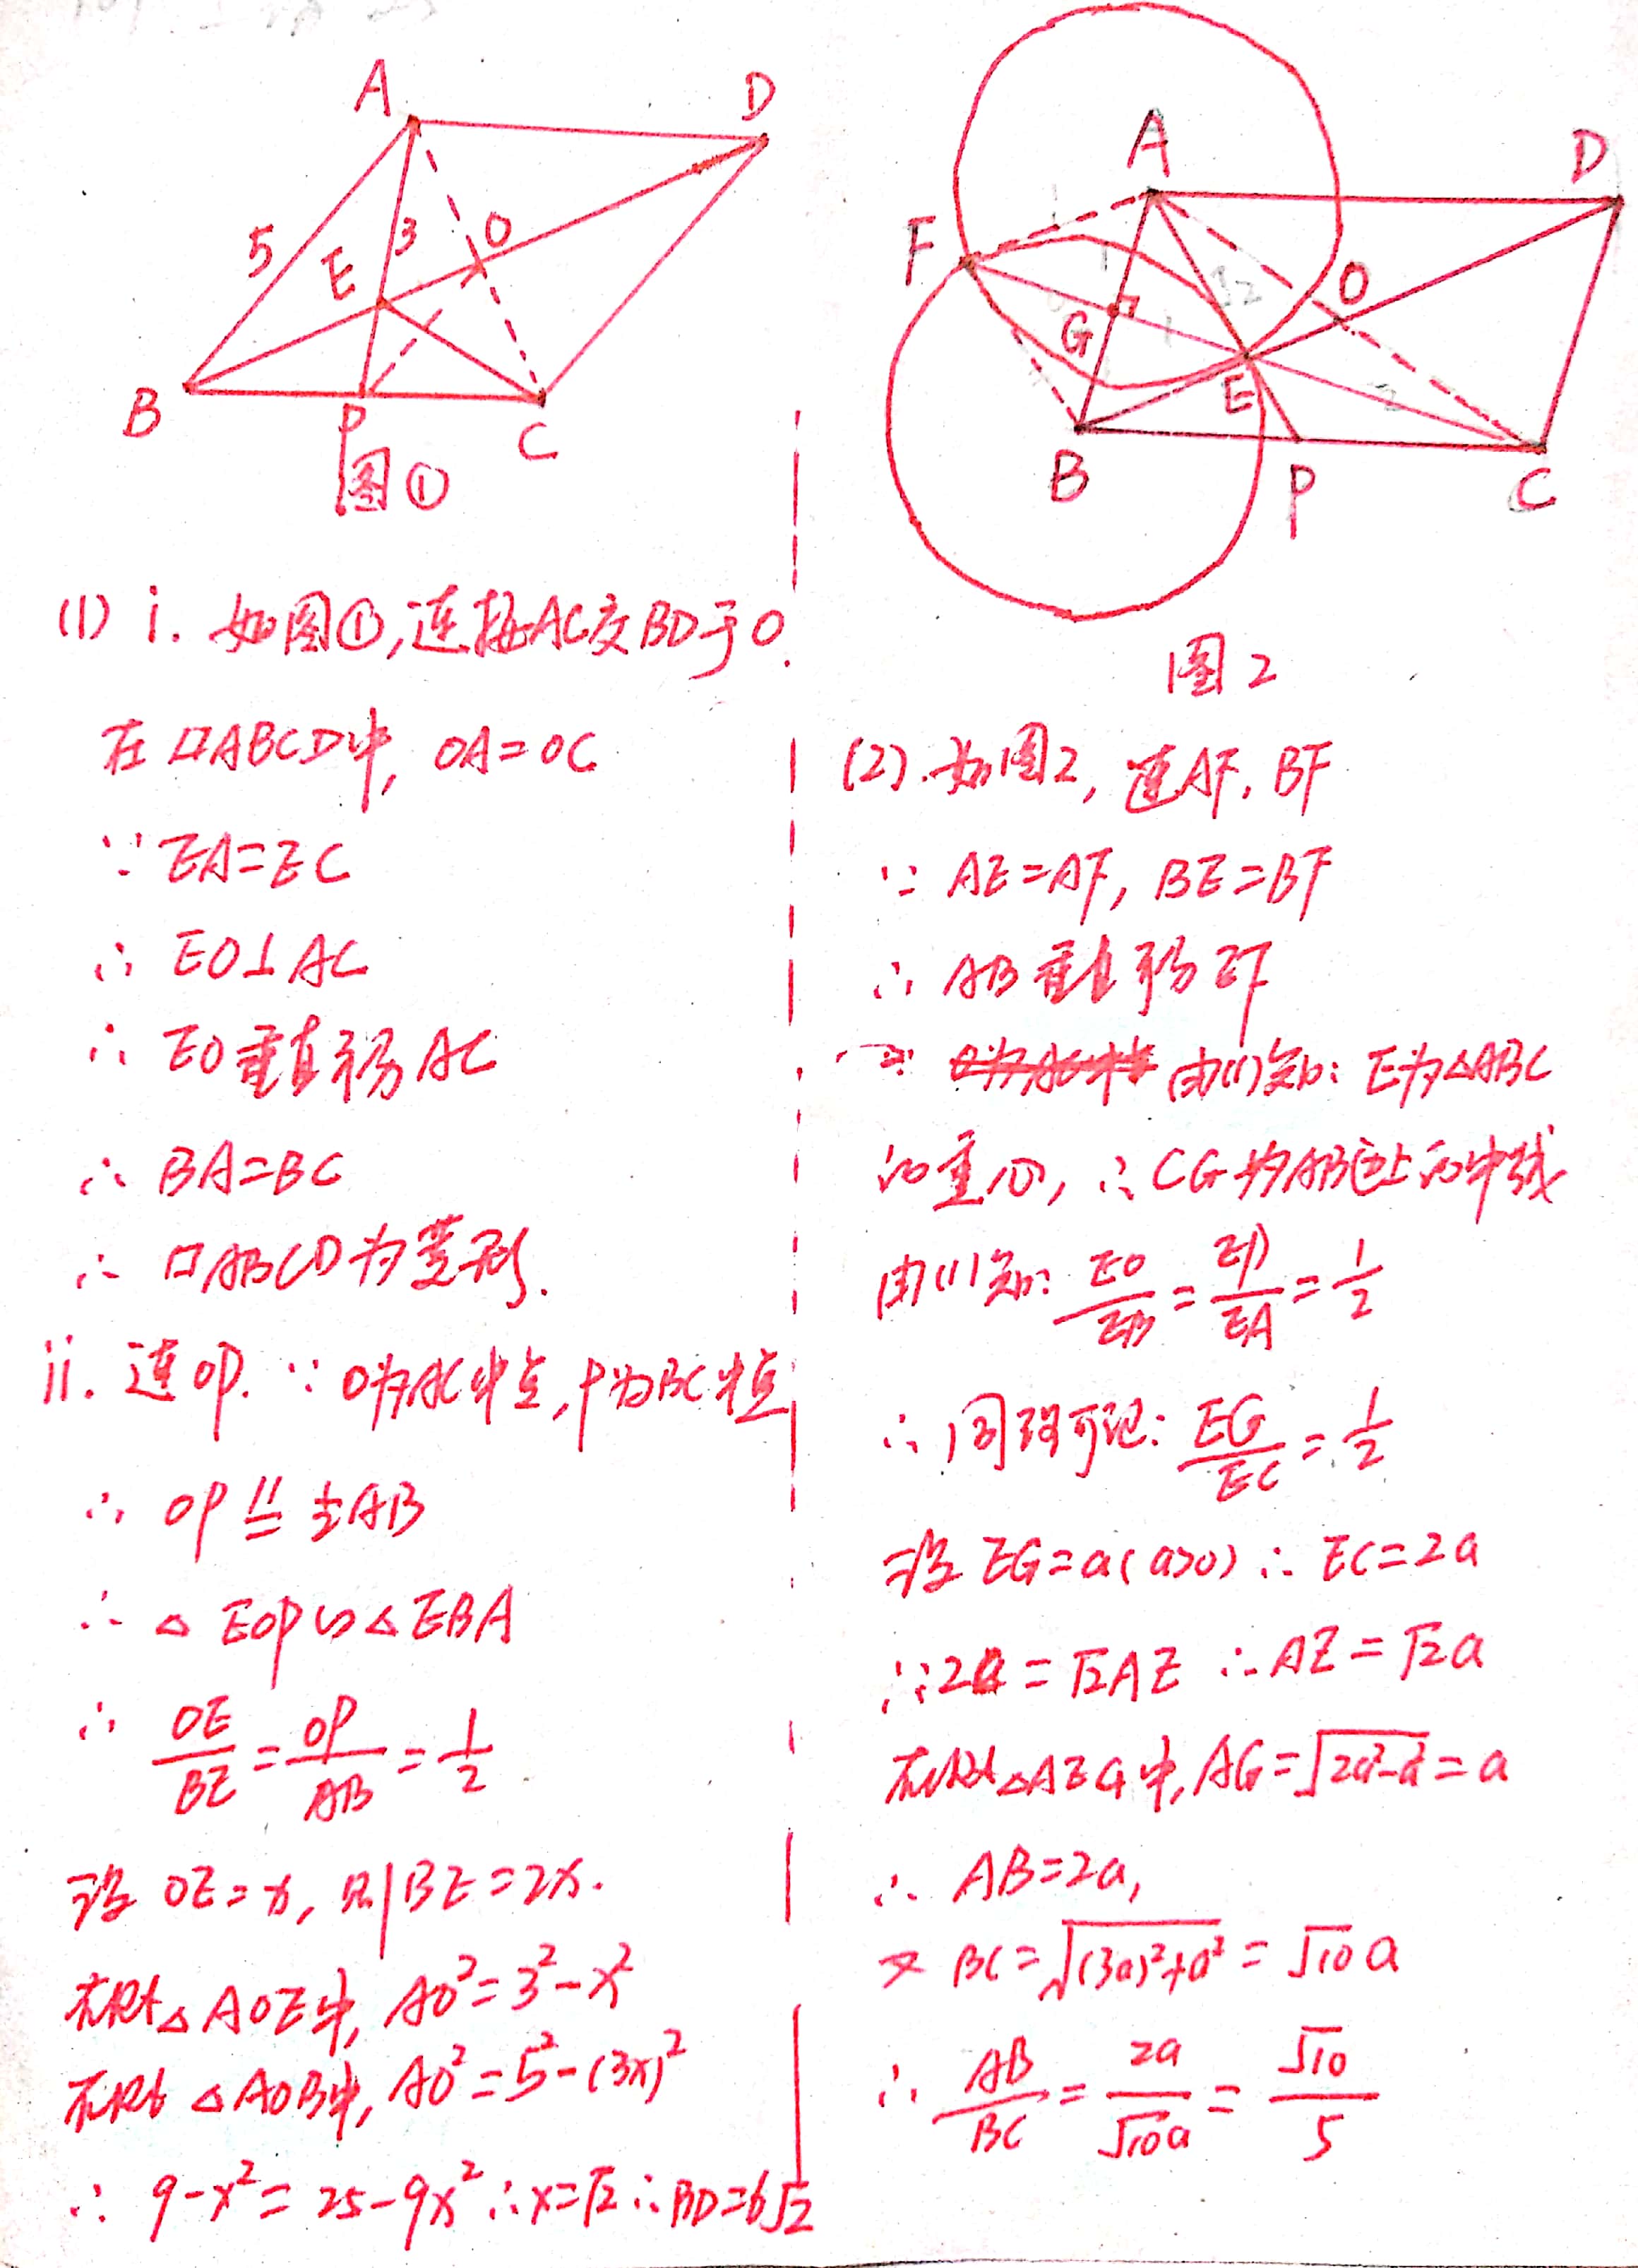 A
D
5
3
O
E
B
P
C
图①
(1) i. 如图①,连接AC交BD于O.
在▱ABCD中, OA=OC
∵ EA=EC
∴ EO⊥AC
∴ EO垂直平分AC
∴ BA=BC
∴ ▱ABCD为菱形.
ii. 连OP. ∵ O为AC中点, P为BC中点
∴ OP ∥= ½AB
∴ △EOP∽△EBA
∴ OE/BE = OP/AB = 1/2
设 OE=x, 则BE=2x.
在Rt△AOE中, AO²=3²-x²
在Rt△AOB中, AO²=5²-(3x)²
∴ 9-x²=25-9x² ∴x=√2 ∴BD=6√2
A
D
F
O
G
E
B
P
C
图2
(2). 如图2, 连AF, BF
∵ AE=AF, BE=BF
∴ AB垂直平分EF
由(1)知: E为△ABC
的重心, ∴ CG为AB边上的中线
由(1)知: EO/EB = EP/EA = 1/2
∴ 同理可证: EG/EC = 1/2
设EG=a(a>0) ∴ EC=2a
∴ 2a=√2AE ∴AE=√2a
在Rt△AEG中, AG=√(2a²-a²)=a
∴ AB=2a,
又 BC=√((3a)²+a²)=√10a
∴ AB/BC = 2a/√10a = √10/5